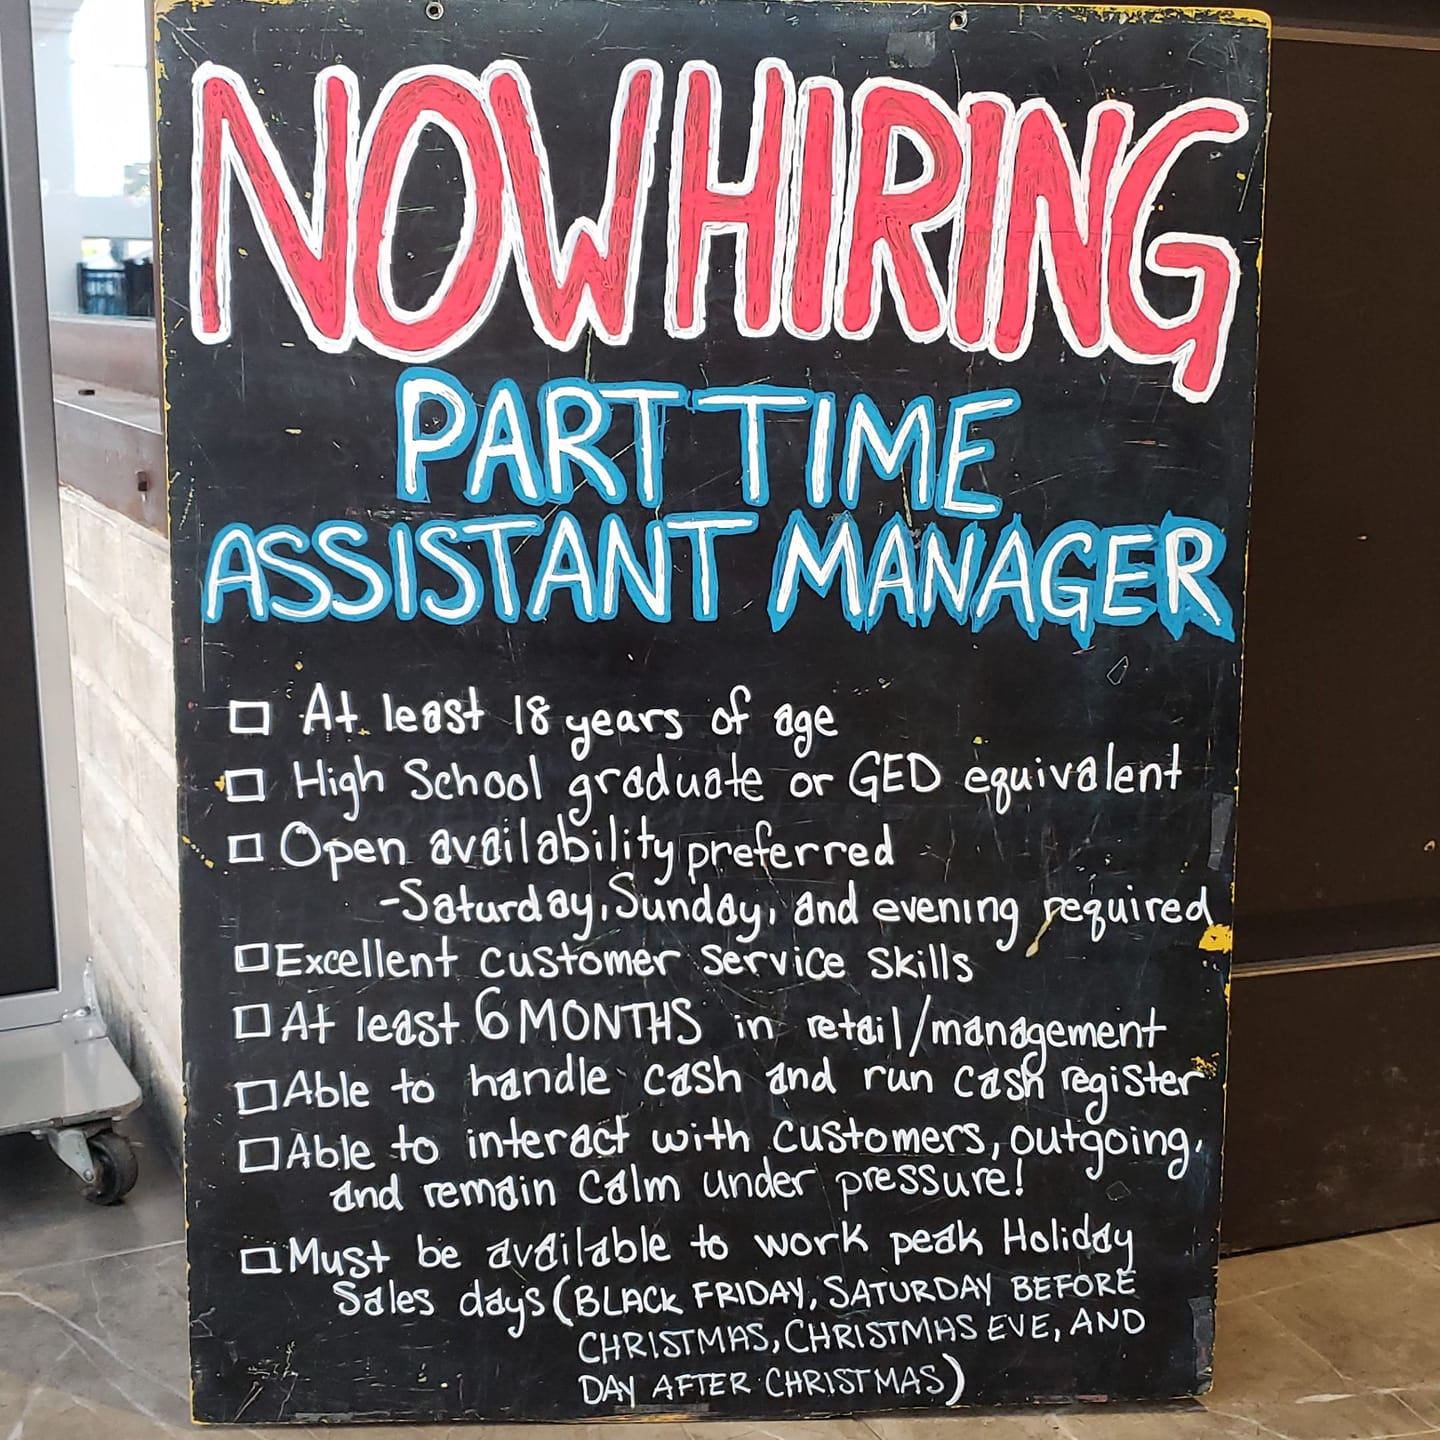 NOW HIRING
PART TIME
ASSISTANT MANAGER
At least 18 years of age
High School graduate or GED equivalent
Open availability preferred
-Saturday, Sunday, and evening required
Excellent customer service skills
At least 6 MONTHS in retail/management
Able to handle cash and run cash register
Able to interact with customers, outgoing,
and remain calm under pressure!
Must be available to work peak Holiday
Sales days (BLACK FRIDAY, SATURDAY BEFORE
CHRISTMAS, CHRISTMAS EVE, AND
DAY AFTER CHRISTMAS)